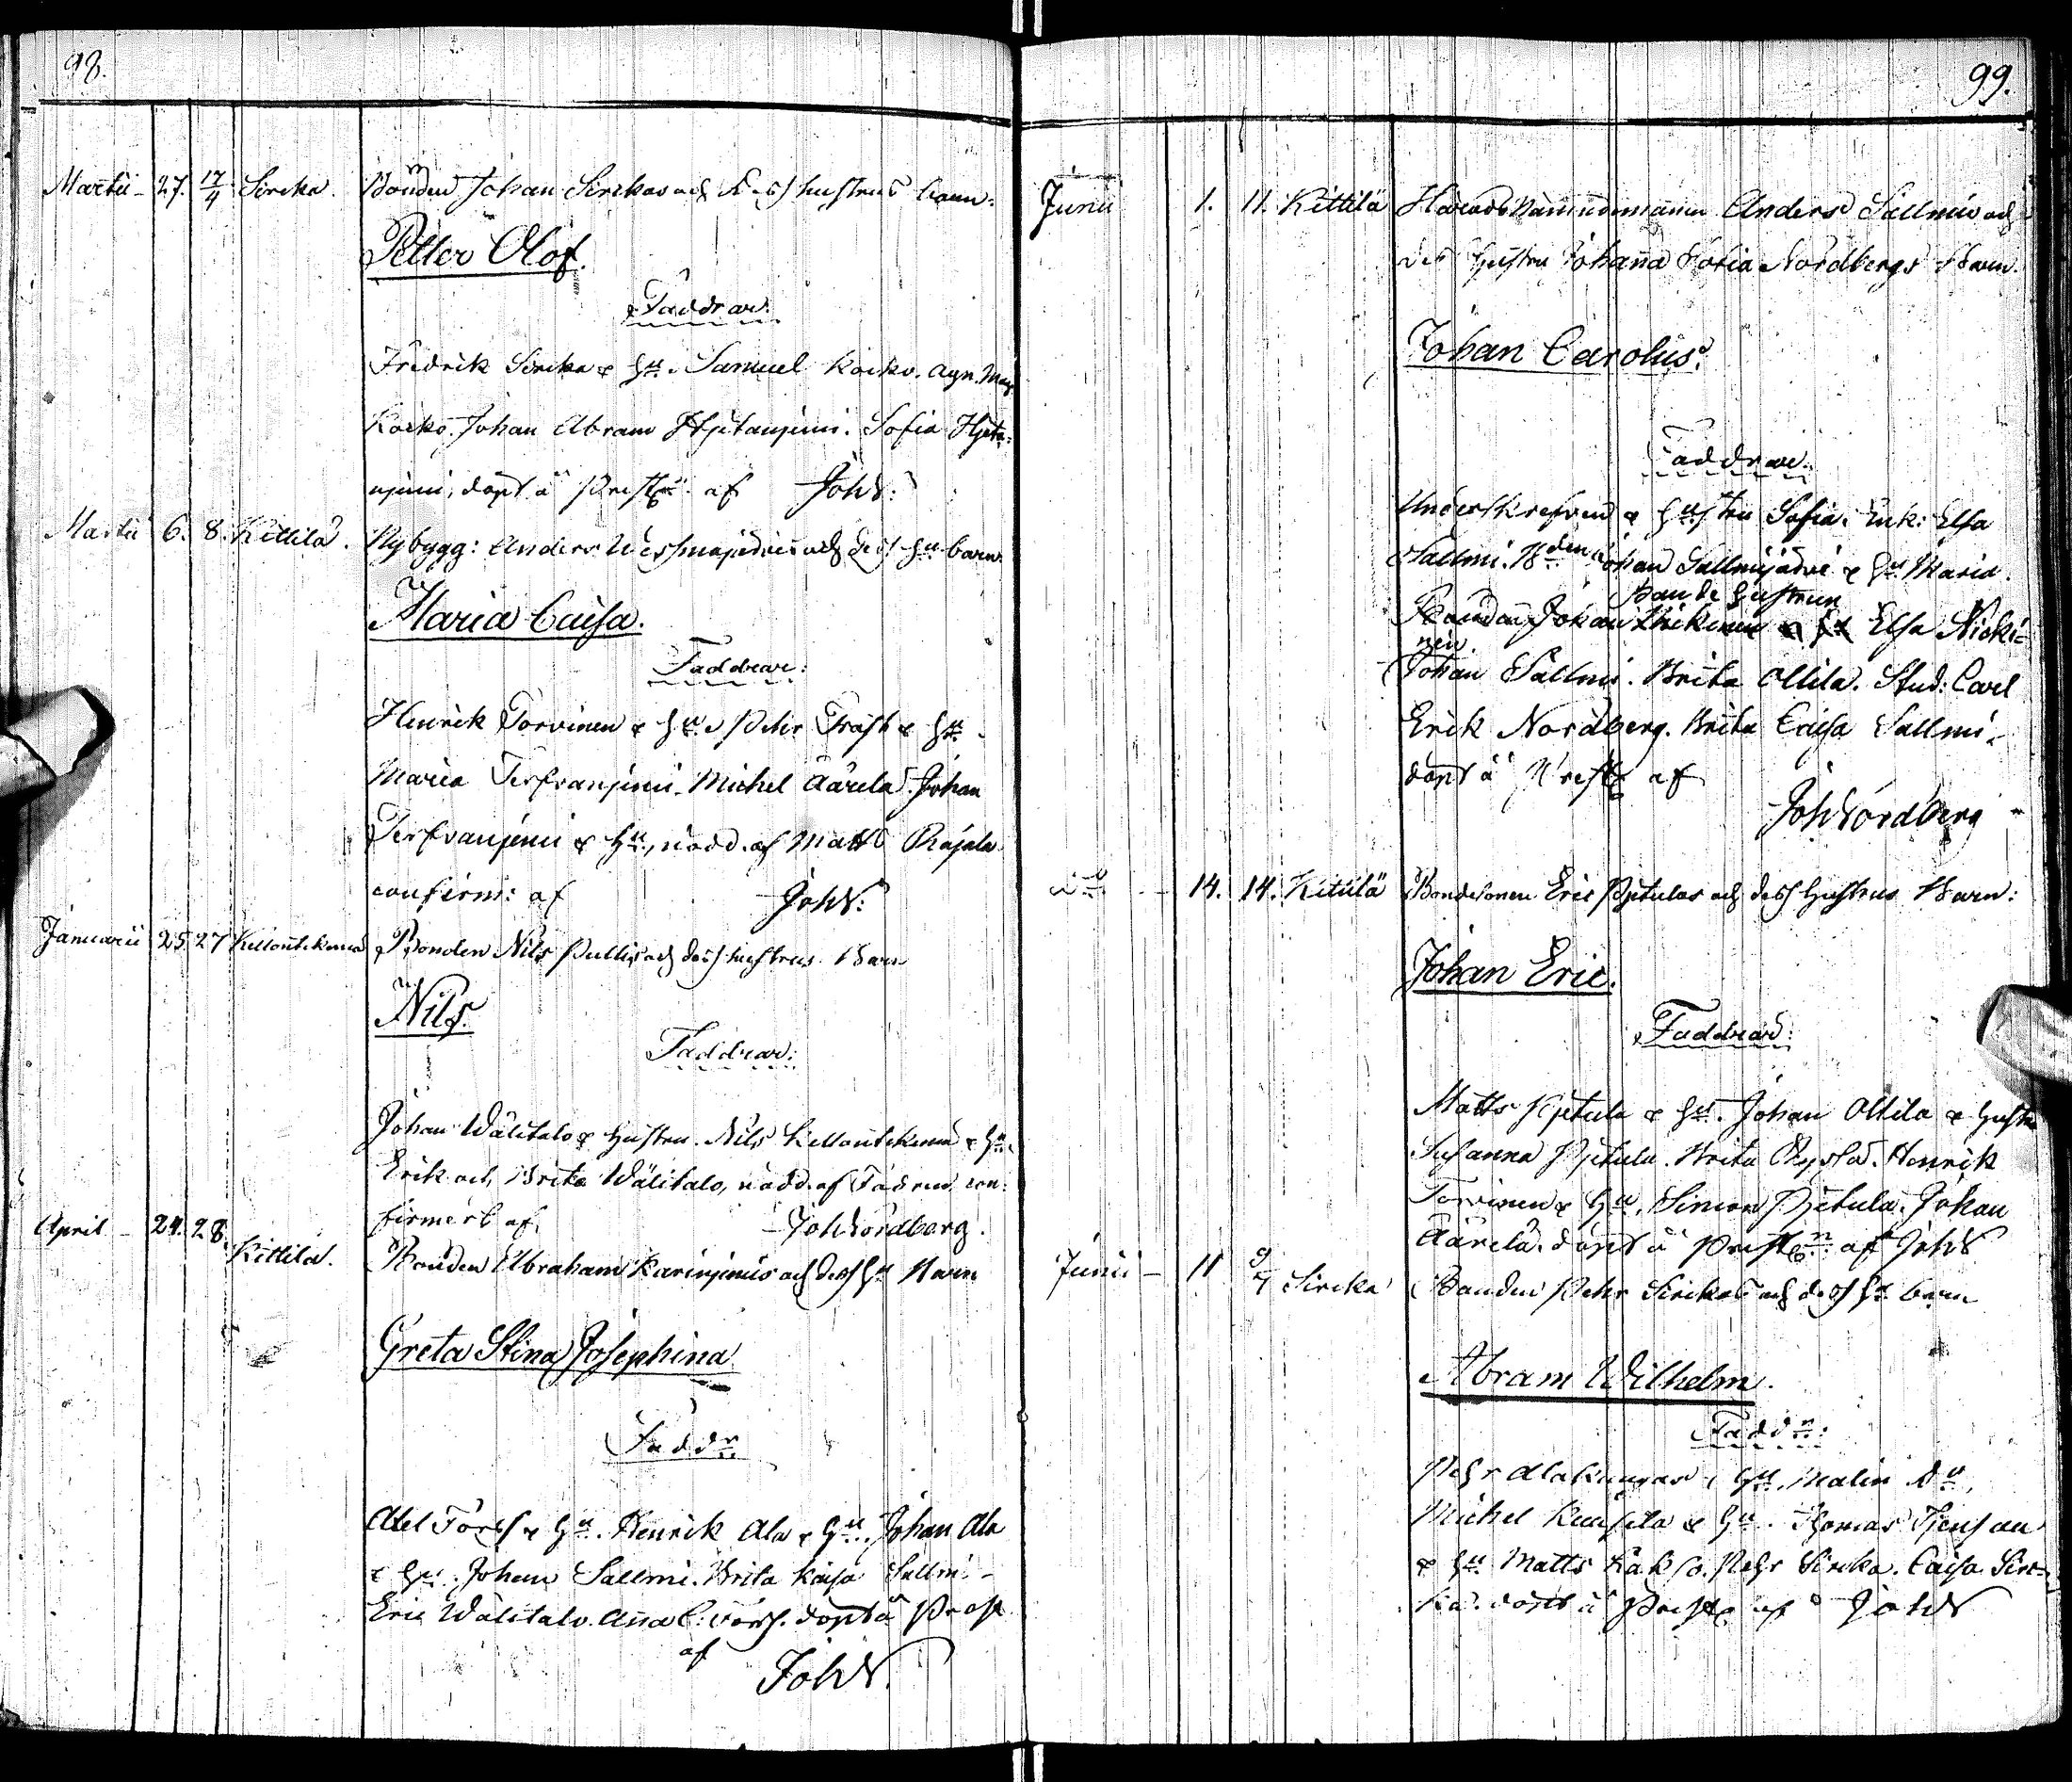 98.
Martii - 27. 17/4 Sircka. Bonden Johan Sirckas och dess hustrus barn:
Petter Olof.
Faddrar:
Fredrik Sircka & Hu. Samuel Koisko. Agn. Marg.
Koisko. Johan Abram Hjetanjemi. Sofia Hjeta-
njemi, döpt å Prestg. af Joh N:
Martii 6. 8. Kittilä. Nybygg: Anders och dess Hu barn
Maria Caisa.
Faddrar:
Henrik Torvinen & Hu. Petr Frast & Hu.
Maria Terfvanjemi. Michel Äärelä. Johan
Terfvanjemi & Hu., nödd. af Matts Rajala
confirm: af Joh N:
Januarii 25 27 Kellontekemä Bonden Nils Pullis och dess hustrus Barn
Nils.
Faddrar:
Johan Wälitalo & Hustru. Nils Kellontekemä & Hu.
Erik och Brita Wälitalo, nödd. af Fadren con-
firmert af Joh Nordberg.
April - 24. 28. Kittilä. Bonden Abraham Karinjemis och dess Hu Barn
Greta Stina Josephina
Faddr:
Abel Forss & Hu. Henrik Ala & Hu. Johan Ala
& Hu. Johan Sallmi. Brita Kaisa Sallmi -
Eric Wälitalo. Anna C: Forss. döpt å Prest
af Joh N.
99.
Junii 1. 11. Kittilä Härads Nämndemannen Anders Sallmis och
des Hustru Johanna Sofia Nordbergs Barn.
Johan Carolus.
Faddrar:
Underskrefven & Hustru Sofia. Enk: Elsa
Sallmi. Bden Johan Sallmijärvi & Hu Maria.
Bonde Hustrun
Bonden Johan Elsa Nicki-
nen.
Johan Sallmi. Brita Ollila. Stud: Carl
Erik Nordberg. Brita Caisa Sallmi -
döpt å Prestg af
Joh Nordberg
do - 14. 14. Kittilä Bondesonen Eric Pjetulas och dess Hustrus Barn:
Johan Eric.
Faddrar:
Matts Pjetula & Hu. Johan Ollila & Hustru
Susanna Pjetula. Brita. Henrik
Torvinen & Hu. Simon Pjetula. Johan
Äärelä. döpt å Prestg af Joh N
Junii - 11 9/7 Sircka Bonden Pehr Sirckas och dess Hu barn
Abram Wilhelm.
Faddr:
Pehr Alakungas, Hu. Malin Do,
Michel Kuusela & Hu. Thomas
& Hu. Matts. Pehr Sircka. Caisa Sirc-
ka. döpt å Prestg af Joh N